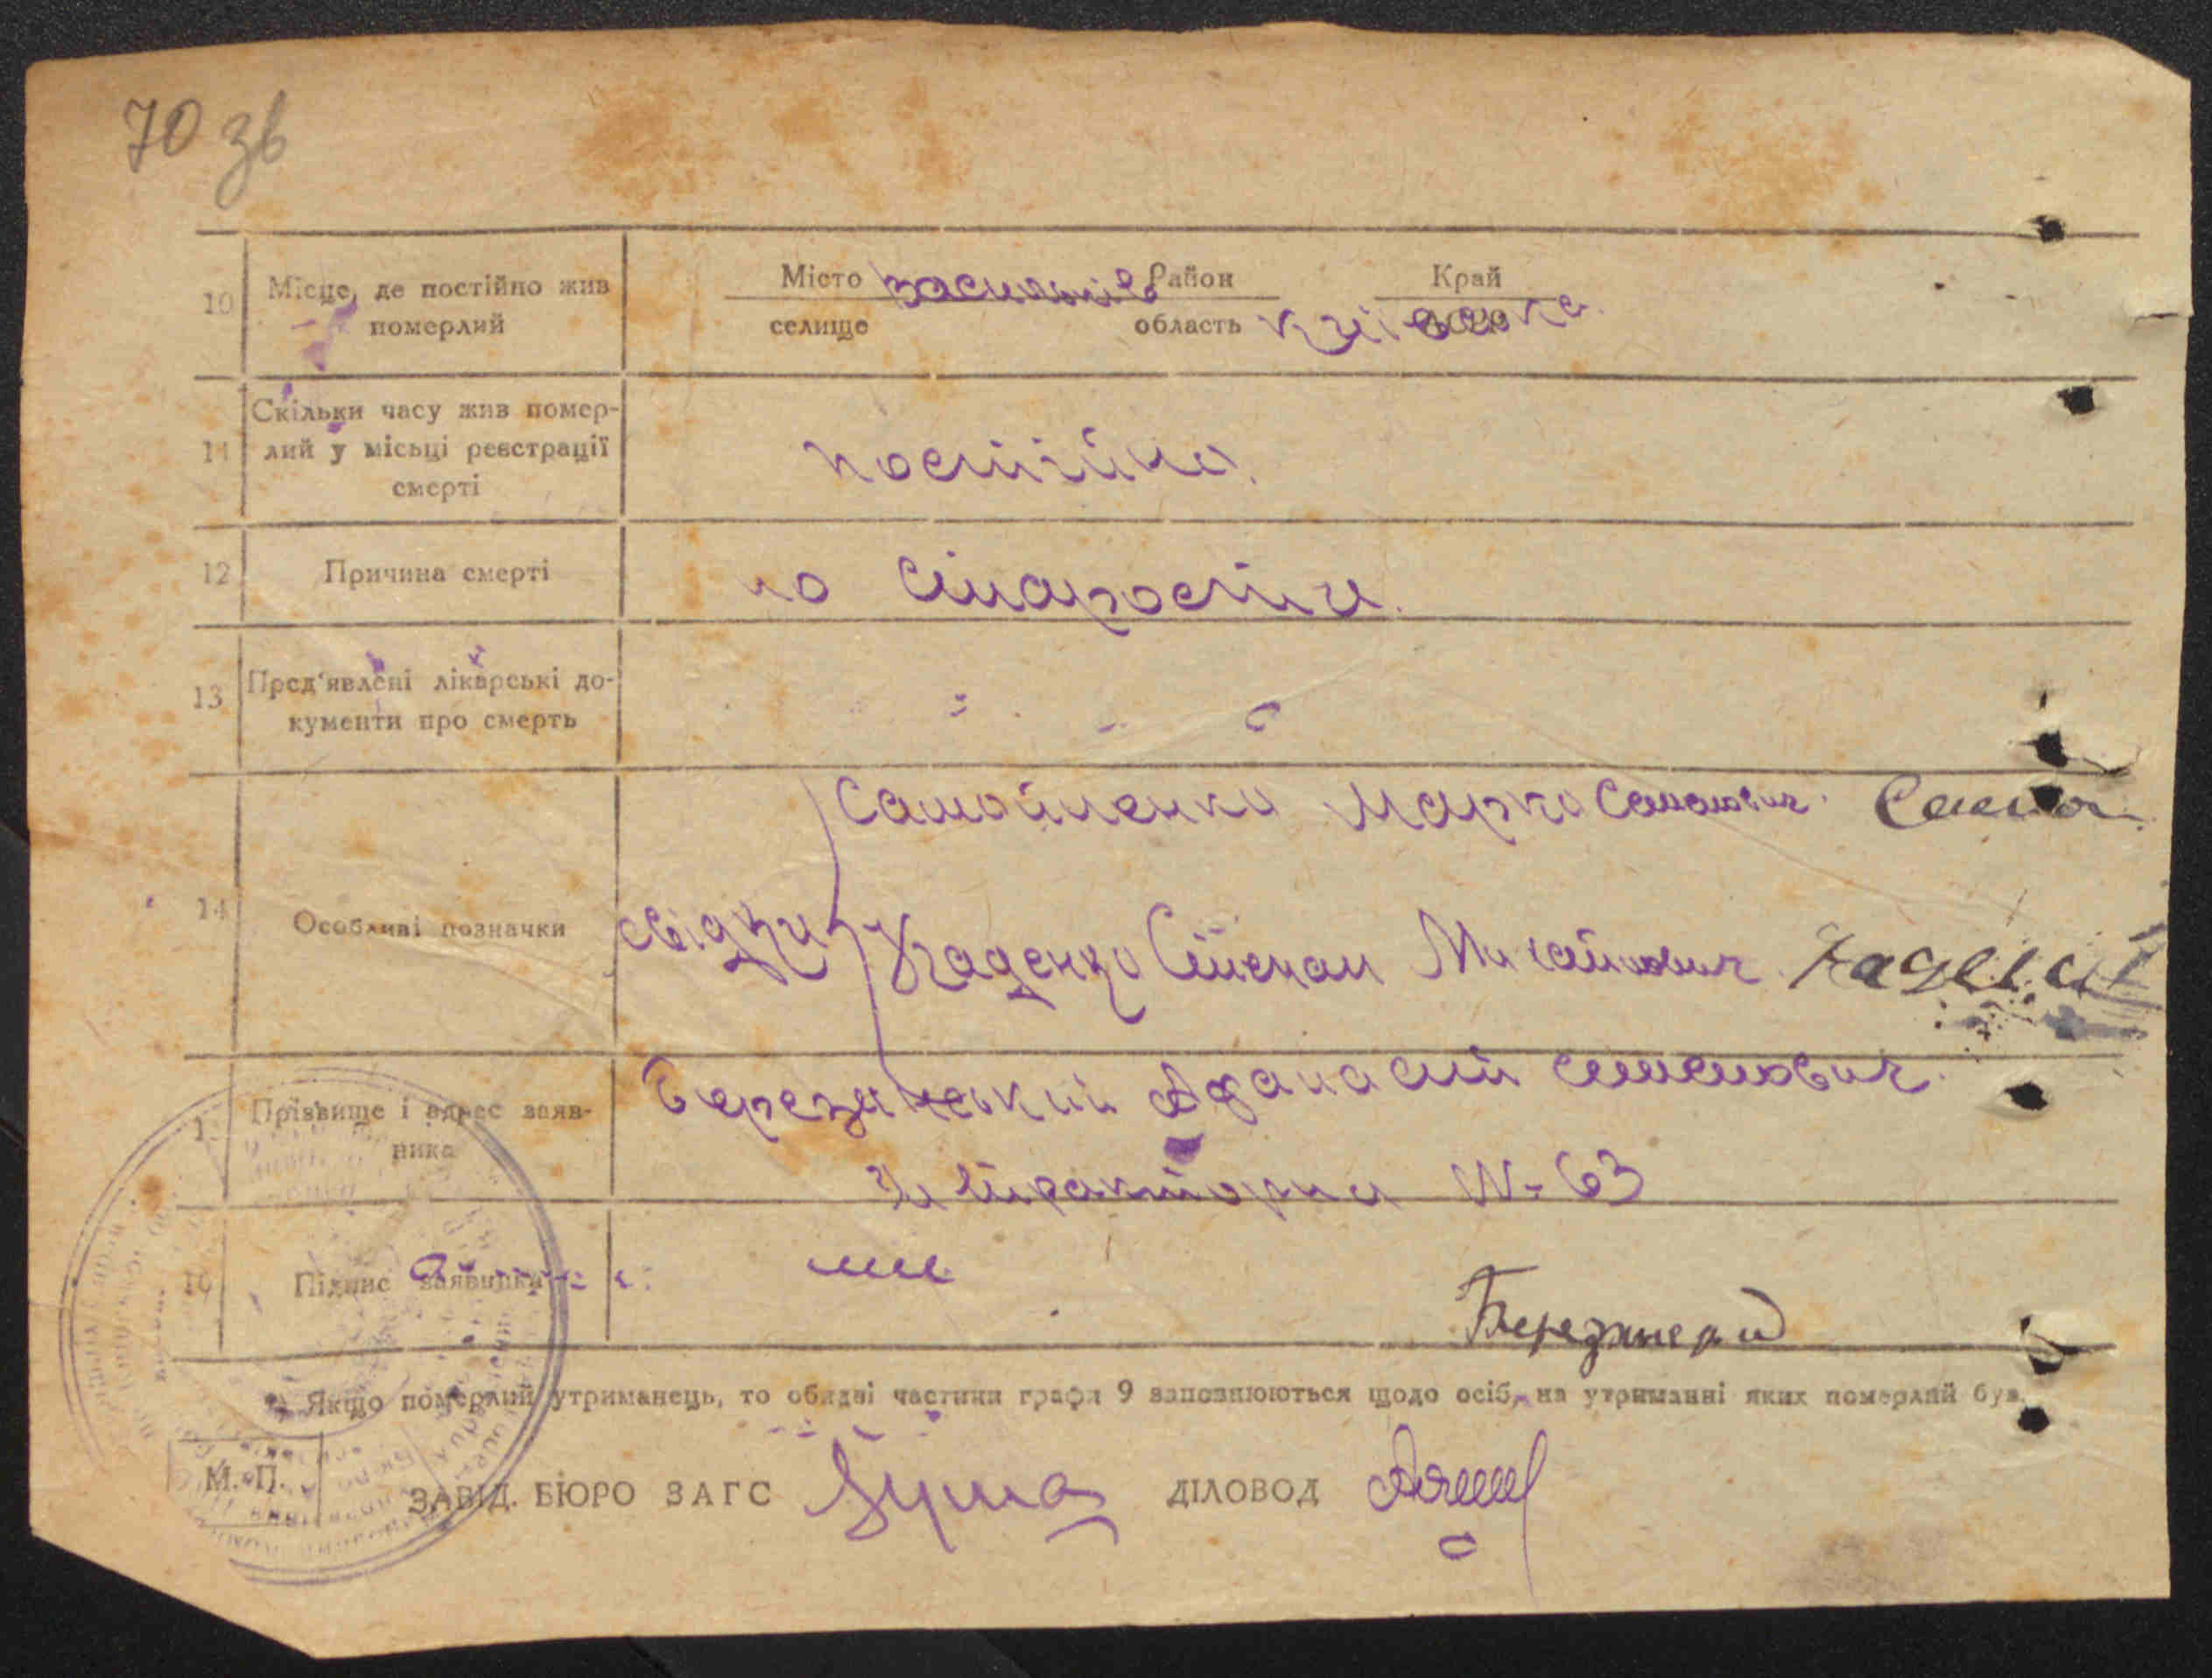 70 зв
10 Місце, де постійно жив померлий
Місто Васильків Район Край
селище область Київська
11 Скільки часу жив помер-
лий у місьці реєстрації
смерті
постійно.
12 Причина смерті
по старости.
13 Пред'явлені лікарські до-
кументи про смерть
Самойленко Марко Семенович.
14 Особливі позначки
свідки Каденко Степан Михайлович
Прізвище і адрес заяв-
ника
Березанський Афанасій Семенович.
Тракторна № 63
Підпис заявника
Якщо померлий утриманець, то обидві частини графи 9 заповнюються щодо осіб, на утриманні яких померлий був.
М. П.
ЗАВІД. БЮРО ЗАГС ДІЛОВОД